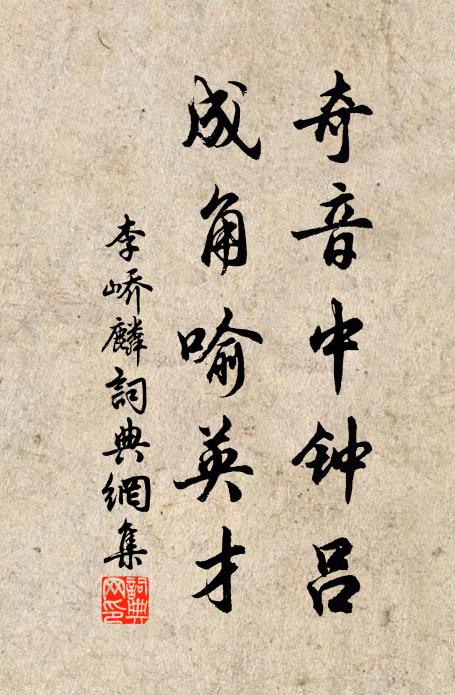 奇音中钟吕
成角喻英才
李峤麟詞典網集
詞典
网印